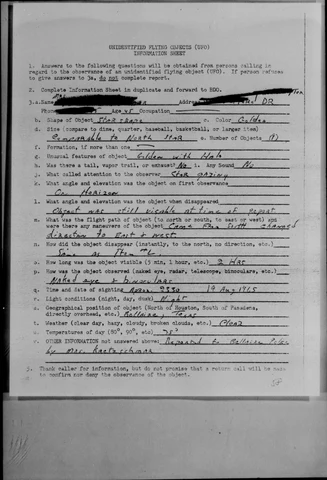 UNIDENTIFIED FLYING OBJECTS (UFO)
INFORMATION SHEET
1. Answers to the following questions will be obtained from persons calling in
regard to the observance of an unidentified flying object (UFO). If person refuses
to give answers to 3a, do not complete report.
2. Complete Information Sheet in duplicate and forward to BDO.
3.a. Address DR
Phone Age 45 Occupation
b. Shape of Object Star shape c. Color Golden
d. Size (compare to dime, quarter, baseball, basketball, or larger item)
Comparable to North Star e. Number of Objects (1)
f. Formation, if more one
g. Unusual features of object Golden with Halo
h. Was there a tail, vapor trail, or exhaust No i. Any Sound No
j. What called attention to the observer Star gazing
k. What angle and elevation was the object on first observance
On Horizon
l. What angle and elevation was the object when disappeared
Object was still visable at time of report
m. What was the flight path of object (to north or south, to east or west)
were there any maneuvers of the object Came from South changed
direction to East & West
n. How did the object disappear (instantly, to the north, no direction, etc.)
Same as Item "L"
o. How long was the object visible (5 min, 1 hour, etc.) 2 Hrs
p. How was the object observed (naked eye, radar, telescope, binoculars, etc.)
Naked eye & binoculars
q. Time and date of sighting Approx. 2230 19 Aug 1965
r. Light conditions (night, day, dusk) Night
s. Geographical position of object (North of Houston, South of Pasadena,
directly overhead, etc.) Bellaire, Texas
t. Weather (clear day, hazy, cloudy, broken clouds, etc.) Clear
u. Temperature of day (80°, 90°, etc)
v. OTHER INFORMATION not answered above: Reported to Bellaire Police
by Mrs.
3. Thank caller for information, but do not promise that a return call will be made
to confirm nor deny the observance of the object.